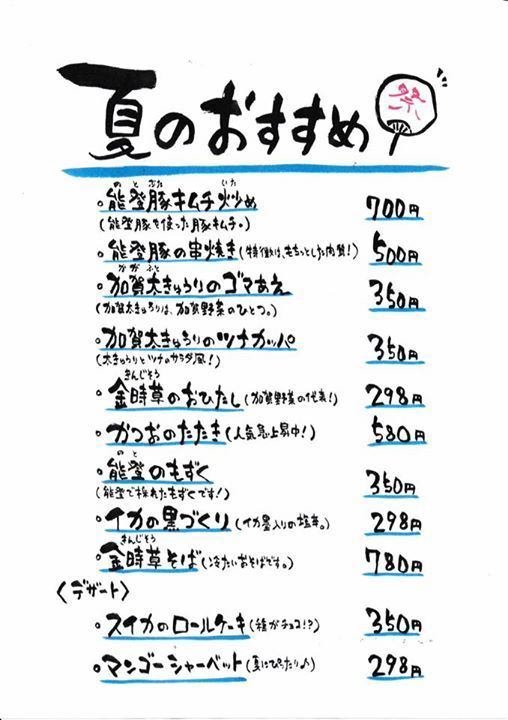 夏のおすすめ 祭
・能登豚キムチ炒め 700円
(能登豚を使った豚キムチ。)
・能登豚の串焼き(特徴は、もちっとした肉質!) 500円
・加賀太きゅうりのゴマあえ 350円
(加賀太きゅうりは、加賀野菜のひとつ。)
・加賀太きゅうりのツナカッパ 350円
(太きゅうりとツナのサラダ風!)
・金時草のおひたし(加賀野菜の代表!) 298円
・かつおのたたき(人気急上昇中!) 580円
・能登のもずく 350円
(能登で採れたもずくです!)
・イカの黒づくり(イカ墨入りの塩辛。) 298円
・金時草そば(冷たいおそばです。) 780円
〈デザート〉
・スイカのロールケーキ(種がチョコ!?) 350円
・マンゴーシャーベット(夏にぴったり♪) 298円